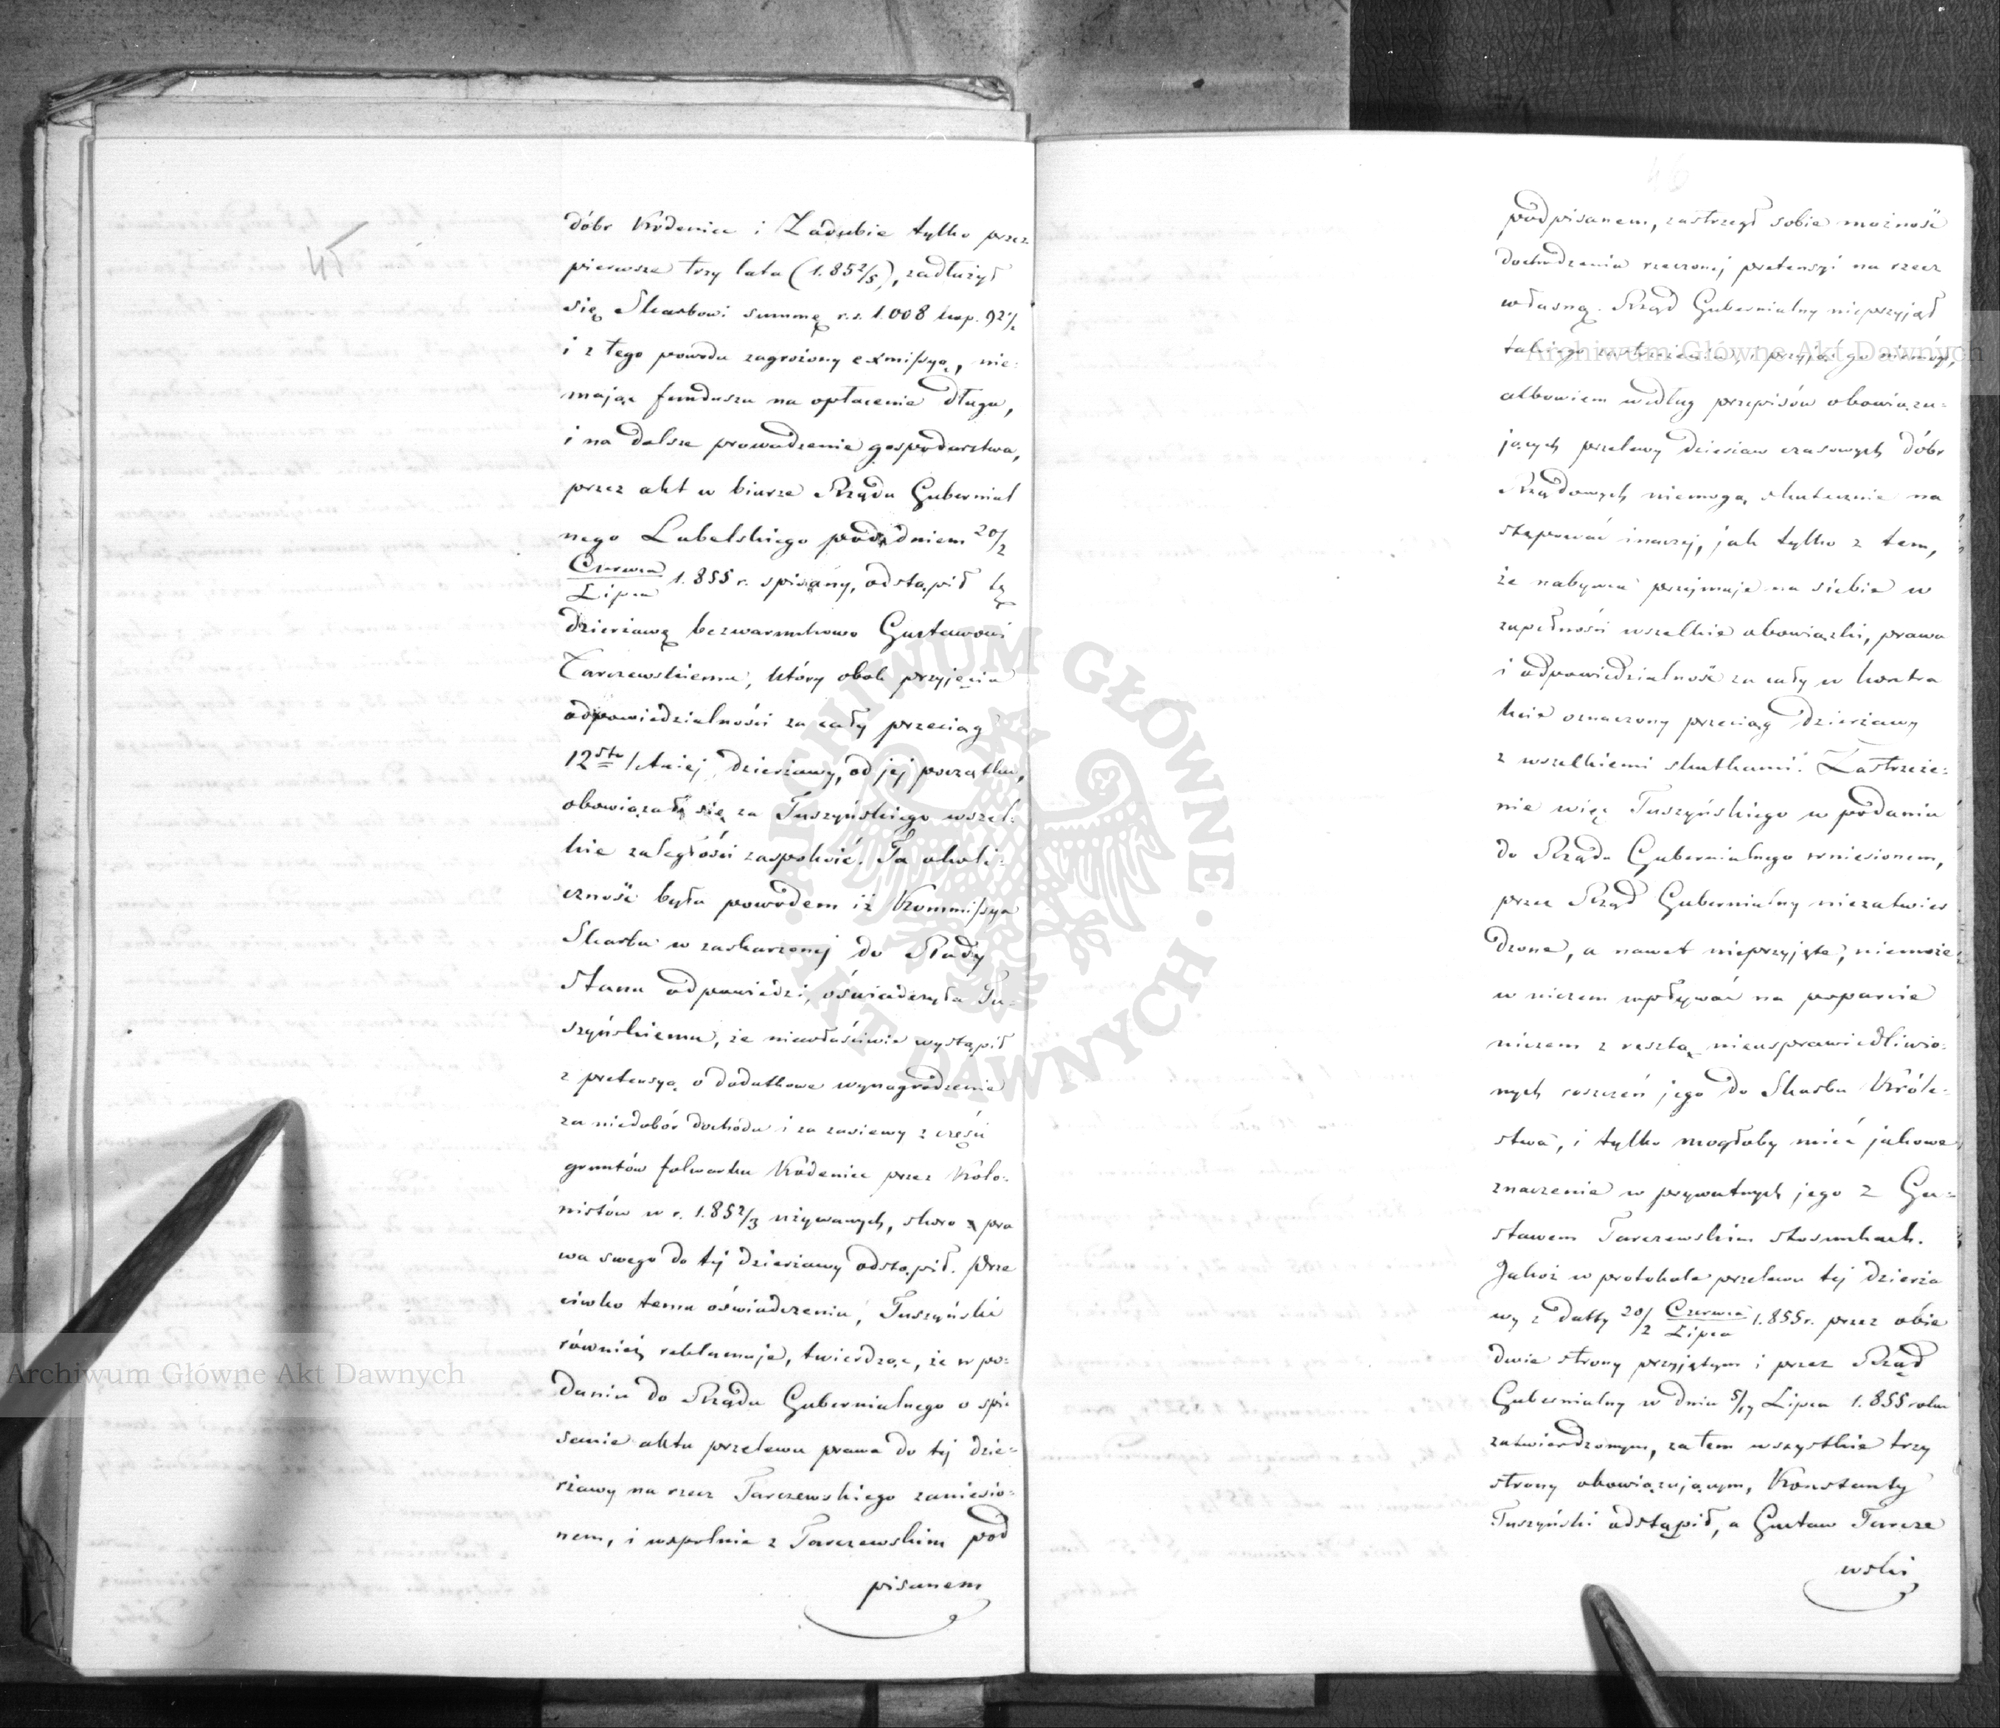 45
dóbr Kodeniec i Zadębie tylko przez
pierwsze trzy lata (1.852/5), zadłużył
się Skarbowi summę r.s. 1.008 kop. 92½
i z tego powodu zagrożony exmissyą, nie-
mając funduszu na opłacenie długu,
i na dalsze prowadzenie gospodarstwa,
przez akt w biurze Rządu Gubernial
nego Lubelskiego pod dniem 20/2
Czerwca/Lipca 1.855 r. spisany, odstąpił tę
dzierżawę bezwarunkowo Gustawowi
Tarczewskiemu, który obok przyjęcia
odpowiedzialności za cały przeciąg
12sto letniej dzierżawy, od jej początku,
obowiązał się za Tuszyńskiego wszel-
kie zaległości zaspokoić. Ta okoli-
czność była powodem iż Kommissya
Skarbu w zaskarżonej do Rady
Stanu odpowiedzi, oświadczyła Tu-
szyńskiemu, że niewłaściwie wystąpił
z pretensyą o dodatkowe wynagrodzenie
za niedobór dochodu i za zasiewy z części
gruntów folwarku Kodeniec przez Kolo-
nistów w r. 1.852/3 używanych, skoro z pra
wa swego do tej dzierżawy odstąpił. Prze
ciwko temu oświadczeniu, Tuszyński
również reklamuje, twierdząc, że w po-
daniu do Rządu Gubernialnego o spi-
sanie aktu przelewu prawa do tej dzie-
rżawy na rzecz Tarczewskiego zaniesio-
nem, i wspólnie z Tarczewskim pod
pisanem
46
podpisanem, zastrzegł sobie możność
dochodzenia rzeczonej pretensyi na rzecz
własną. Rząd Gubernialny nieprzyjął
takiego zastrzeżenia, i przyjąć go niemógł,
albowiem według przepisów obowiązu-
jących przelewy dzierżaw czasowych dóbr
Rządowych niemogą skutecznie na
stępować inaczej, jak tylko z tem,
że nabywca przyjmuje na siebie w
zupełności wszelkie obowiązki, prawa
i odpowiedzialność za cały w kontra
kcie oznaczony przeciąg dzierżawy
z wszelkiemi skutkami. Zastrzeże-
nie więc Tuszyńskiego w podaniu
do Rządu Gubernialnego wniesionem,
przez Rząd Gubernialny niezatwier
dzone, a nawet nieprzyjęte, niemoże
w niczem wpływać na poparcie
niczem z resztą nieusprawiedliwio-
nych roszczeń jego do Skarbu Króle-
stwa, i tylko mogłoby mieć jakowe
znaczenie w prywatnych jego z Gu-
stawem Tarczewskim stosunkach.
Jakoż w protokole przelewu tej dzierża
wy z datty 20/2 Czerwca/Lipca 1.855 r. przez obie
dwie strony przyjętym i przez Rząd
Gubernialny w dniu 5/17 Lipca 1.855 roku
zatwierdzonym, zatem wszystkie trzy
strony obowiązującym, Konstanty
Tuszyński odstąpił, a Gustaw Tarcze
wski
Archiwum Główne Akt Dawnych
Archiwum Główne Akt Dawnych
ARCHIWUM GŁÓWNE AKT DAWNYCH